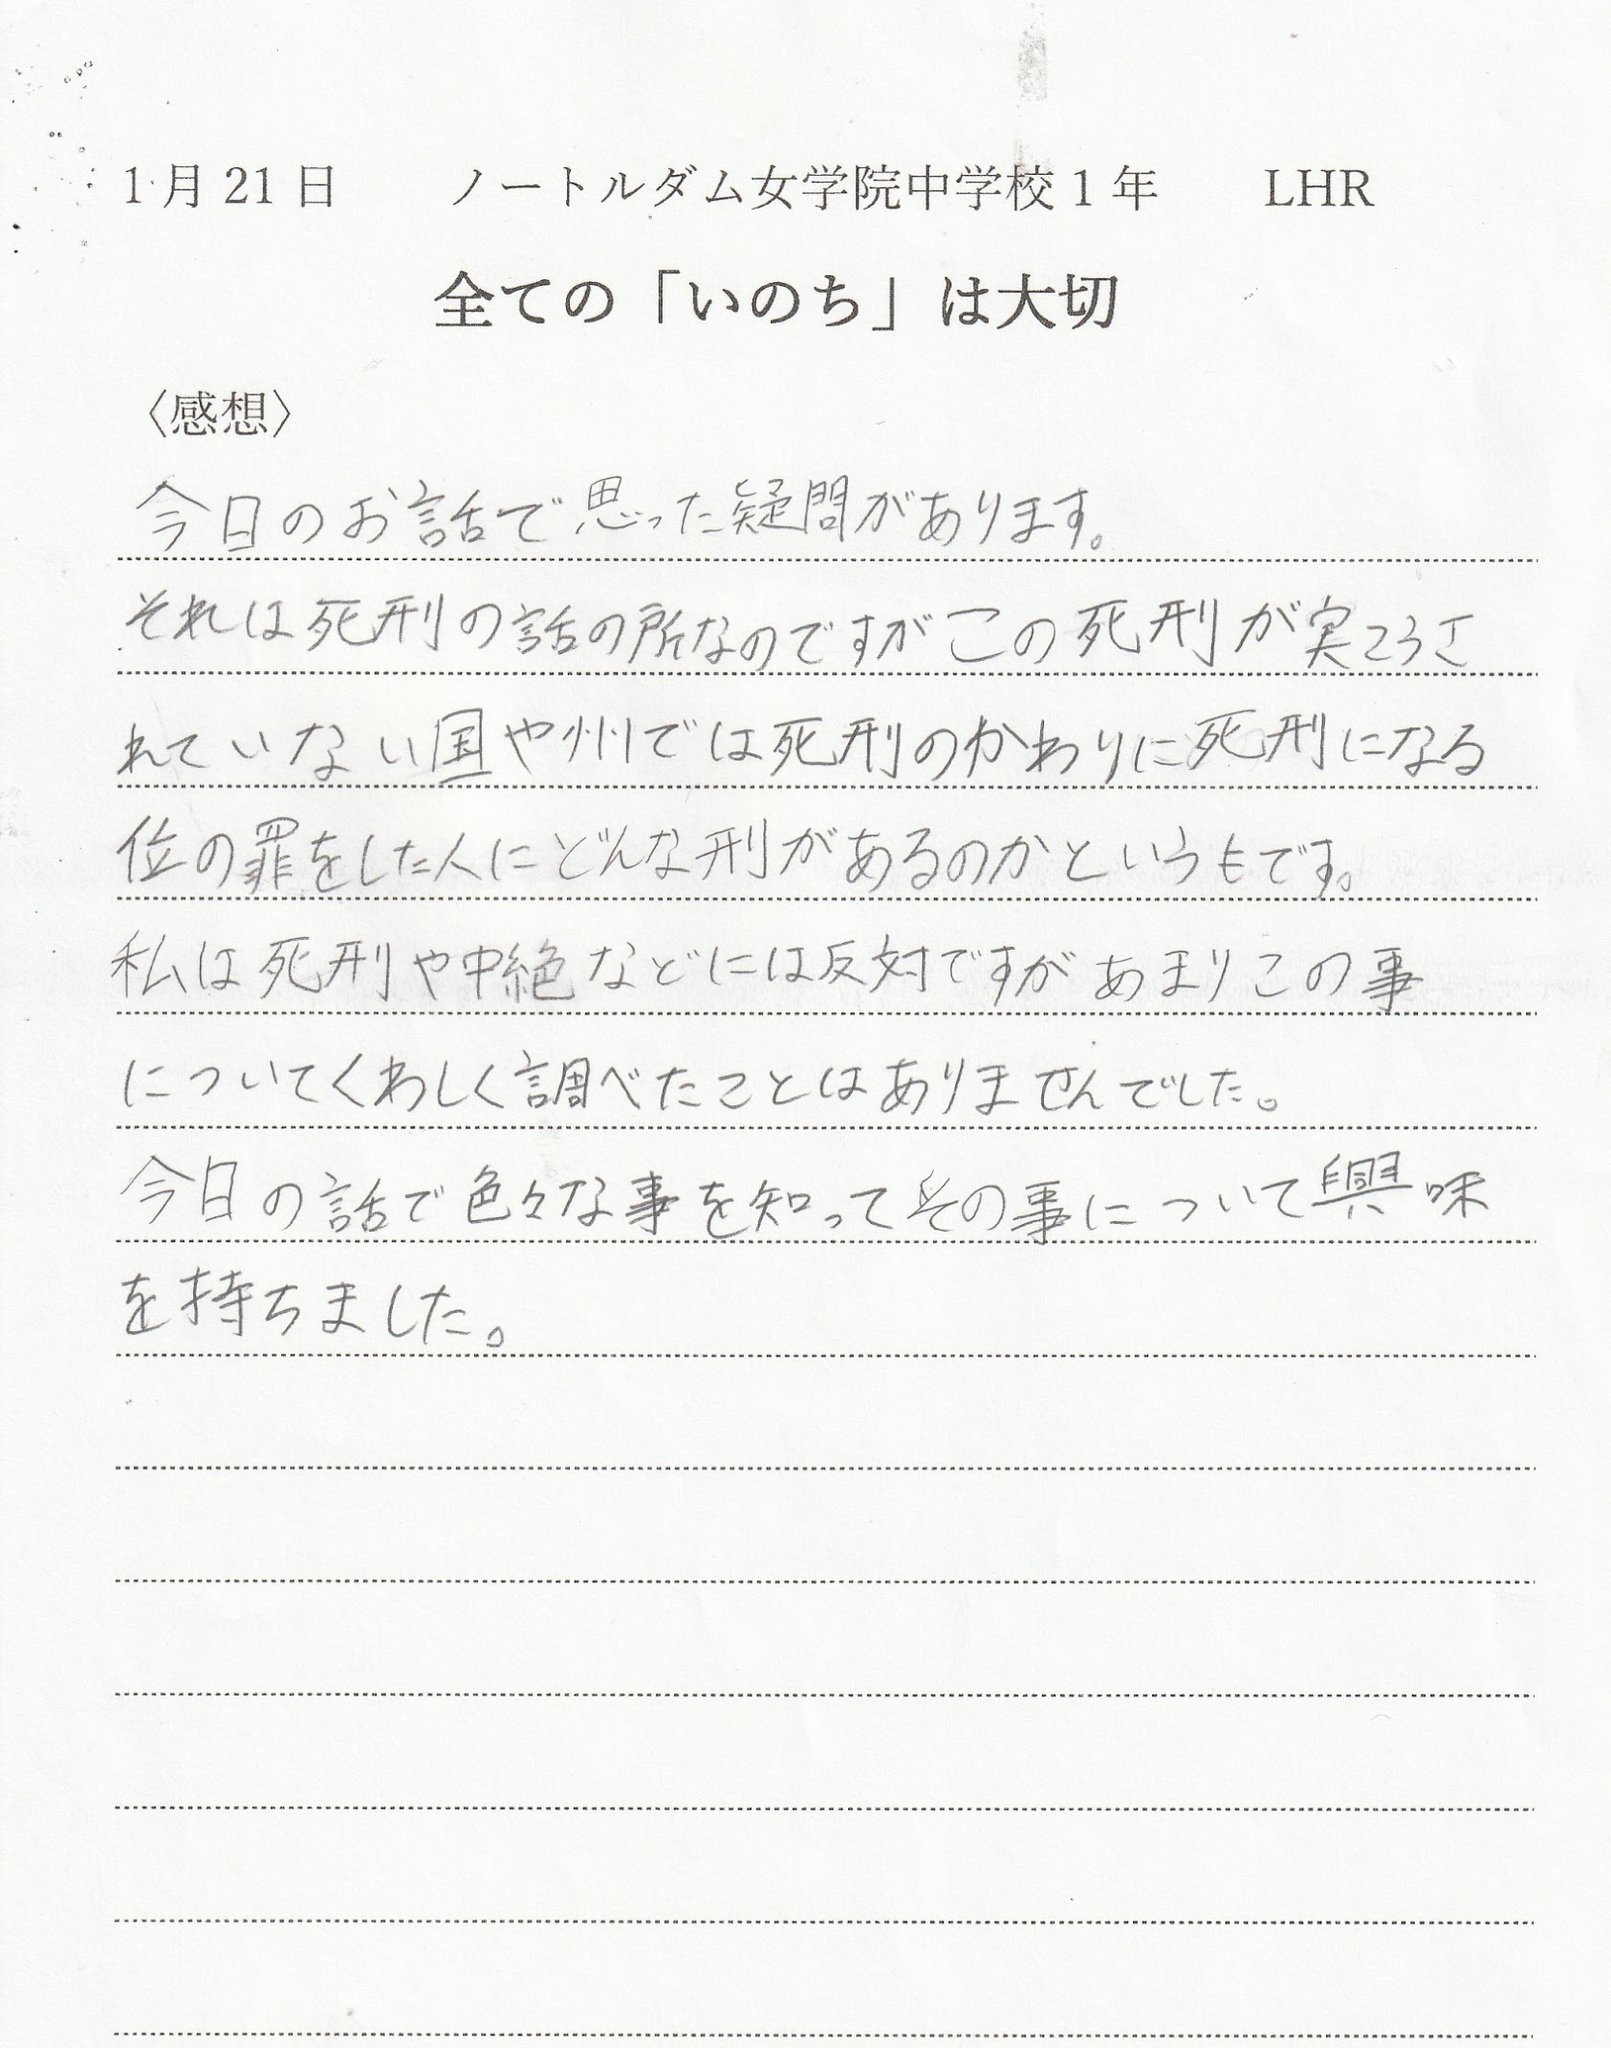 1月21日 ノートルダム女学院中学校1年 LHR
全ての「いのち」は大切
〈感想〉
今日のお話で思った疑問があります。
それは死刑の話の所なのですがこの死刑が実こうさ
れていない国や州では死刑のかわりに死刑になる
位の罪をした人にどんな刑があるのかというもです。
私は死刑や中絶などには反対ですがあまりこの事
についてくわしく調べたことはありませんでした。
今日の話で色々な事を知ってその事について興味
を持ちました。